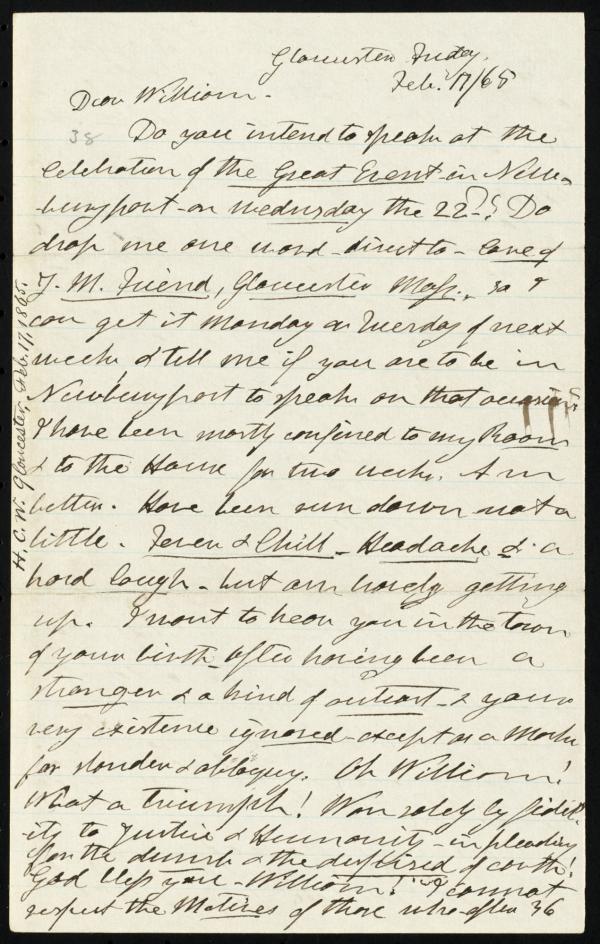 Gloucester Friday.
Feb. 17/65
Dear William.
38
Do you intend to speak at the
celebration of the Great Event in New-
buryport on Wednesday the 22d? Do
drop me one word - direct to - care of
J. M. Friend, Gloucester Mass., so I
can get it Monday or Tuesday of next
week & tell me if you are to be in
Newburyport to speak on that occasion.
I have been mostly confined to my Room
& to the House for two weeks. Am
better. Have been run down not a
little. Fever & Chill - Headache & a
hard Cough - but am barely getting
up. I want to hear you in the town
of your birth after having been a
stranger & a kind of outcast - & your
very existence ignored - except as a Mark
for slander & obloquy. Oh William!
What a Triumph! Won solely by fidel-
ity to Justice & Humanity - in pleading
for the dumb & the despised of earth!
God bless you - William! I cannot
respect the Motives of those who after 36
H. C. W. Gloucester, Feb. 17, 1865.